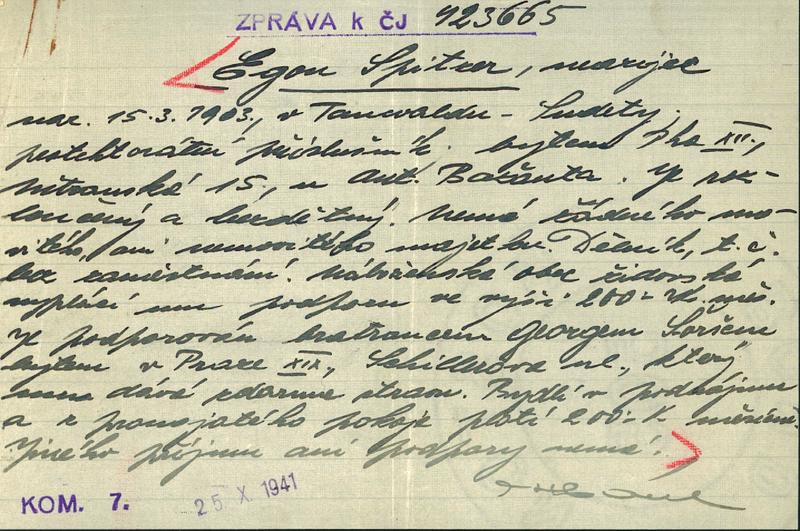 ZPRÁVA K ČJ 923665
Egon Spitzer, neárijec
nar. 15.3.1903, v Tanwaldu - Sudety,
protektorátní příslušník. bytem Pha XII.,
Nitranská 15, u Ant. Bažanta. Je roz-
loučený a bezdětný. Nemá žádného mo-
vitého, ani nemovitého majetku. Dělník, t.č.
bez zaměstnání. Náboženská obec židovská
vyplácí mu podporu ve výši 200.- K měs.
Je podporován bratrancem Georgem
bytem v Praze XIX, Schillerova ul., který
mu dává zdarma stravu. Bydlí v podnájmu
a z pronajatého pokoje platí 200.- K měsíčně.
Jiného příjmu ani podpory nemá.
KOM. 7. 25 X. 1941